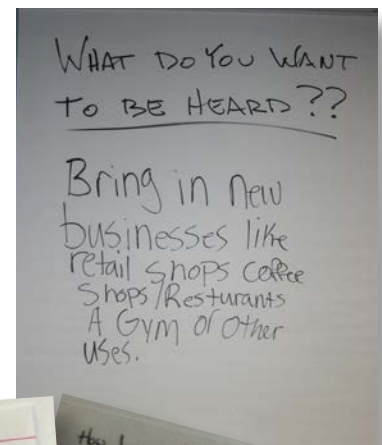 WHAT DO YOU WANT
TO BE HEARD??
Bring in new
businesses like
retail shops coffee
shops/Resturants
A Gym or other
uses.